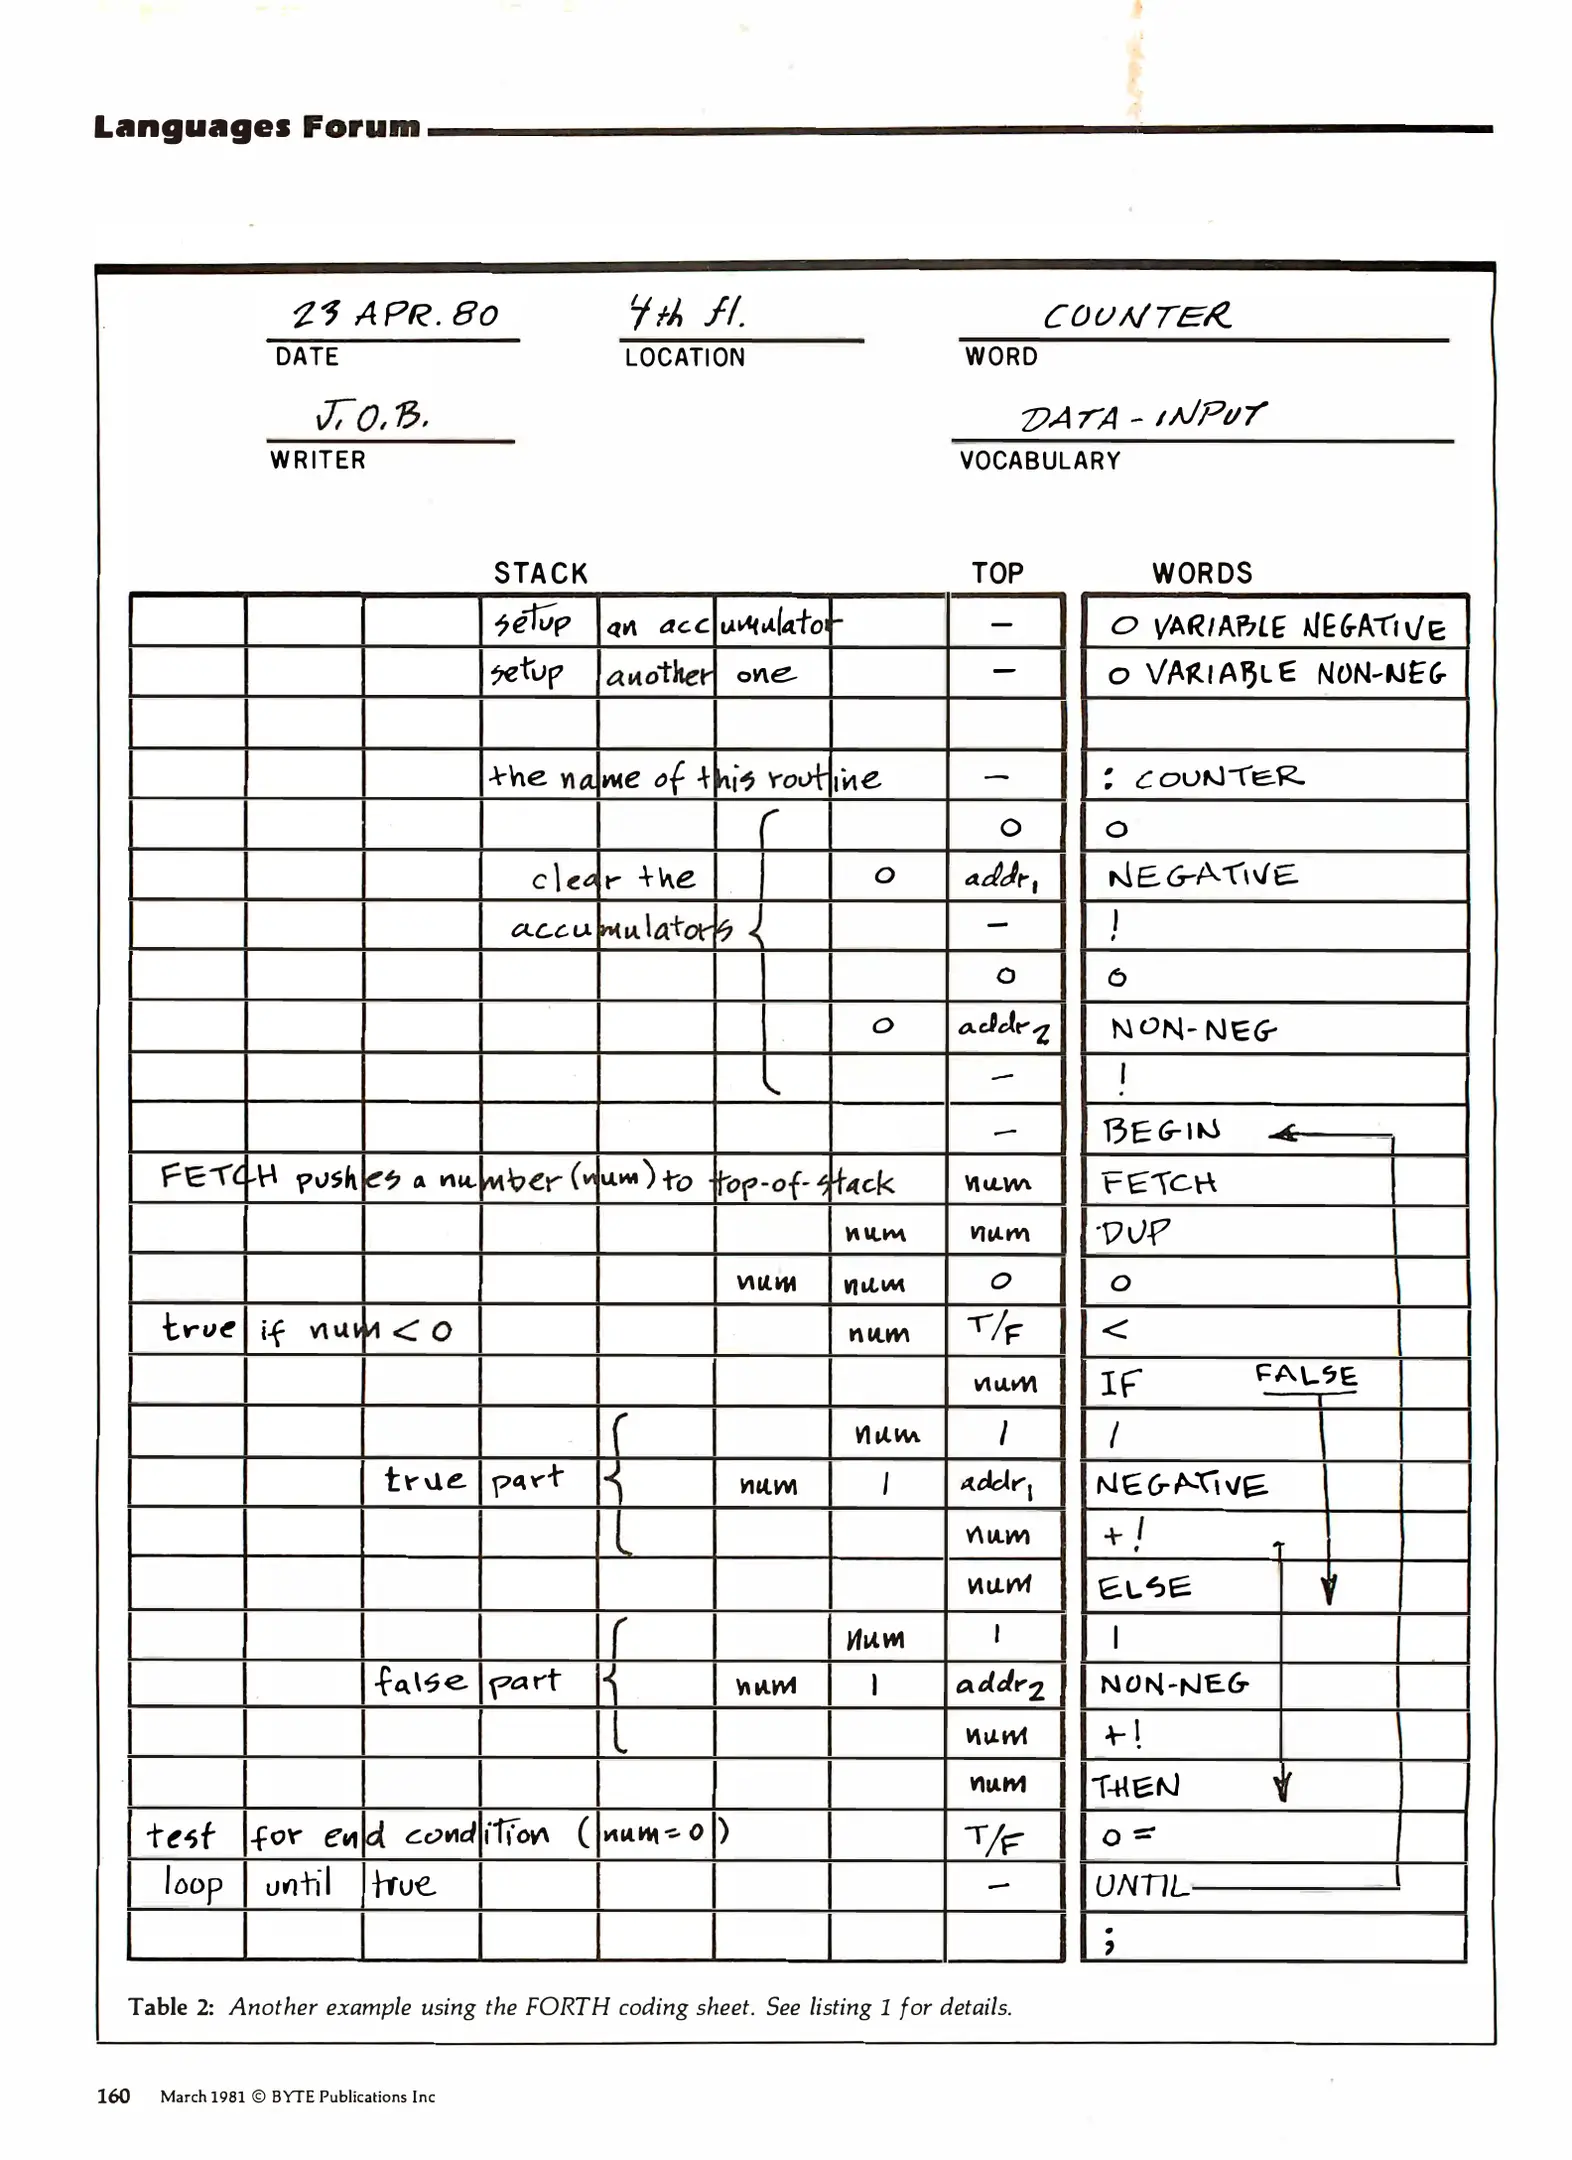 Languages Forum
23 APR. 80 4th fl. COUNTER
DATE LOCATION WORD
J.O.B. DATA-INPUT
WRITER VOCABULARY
STACK TOP WORDS
setup an accumulator – 0 VARIABLE NEGATIVE
setup another one – 0 VARIABLE NON-NEG
the name of this routine – : COUNTER
0 0
clear the 0 addr1 NEGATIVE
accumulators – !
0 0
0 addr2 NON-NEG
– !
– BEGIN
FETCH pushes a number (num) to top-of-stack num FETCH
num num DUP
num num 0 0
true if num < 0 num T/F <
num IF FALSE
num 1 1
true part num 1 addr1 NEGATIVE
num +!
num ELSE
num 1 1
false part num 1 addr2 NON-NEG
num +!
num THEN
test for end condition (num=0) T/F 0=
loop until true – UNTIL
;
Table 2: Another example using the FORTH coding sheet. See listing 1 for details.
160 March 1981 © BYTE Publications Inc